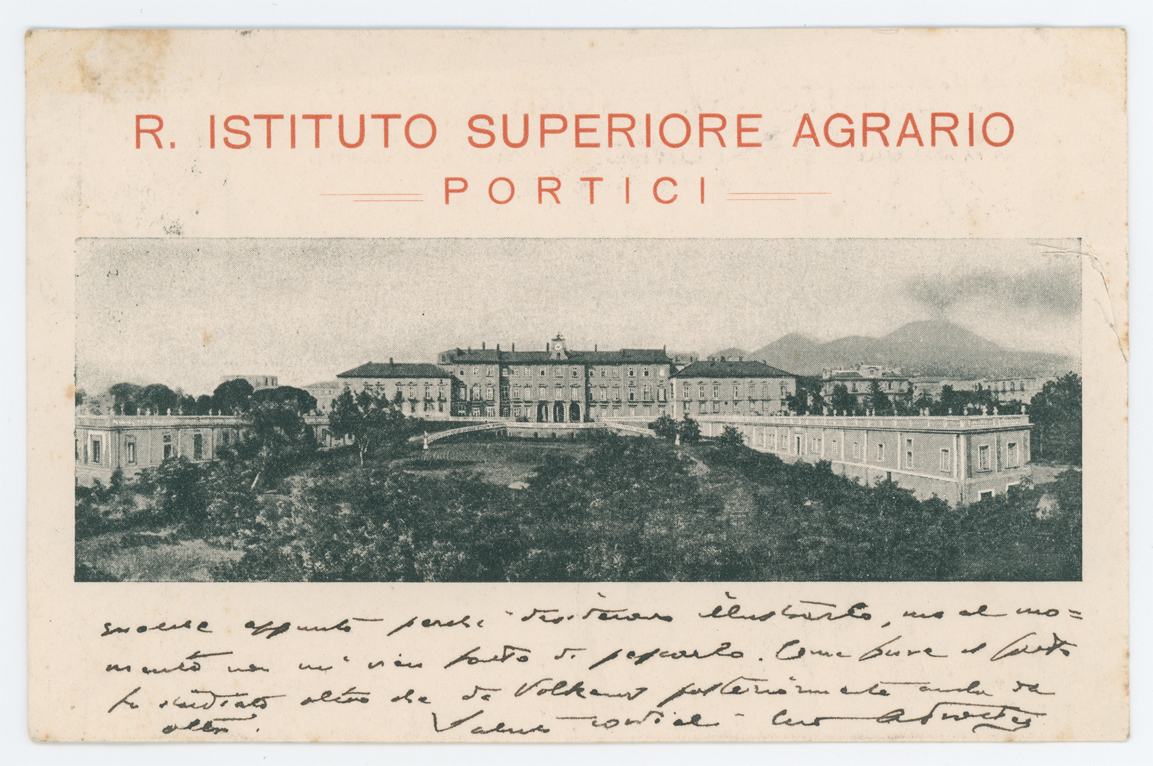 R. ISTITUTO SUPERIORE AGRARIO
PORTICI
appunto perchè desideravo illustrarlo, ma al mo=
mento non m'è vien fatto di pescarlo. Come pure il
fu studiato oltre che da Volkens posteriormente anche da
altri. Saluti cordiali